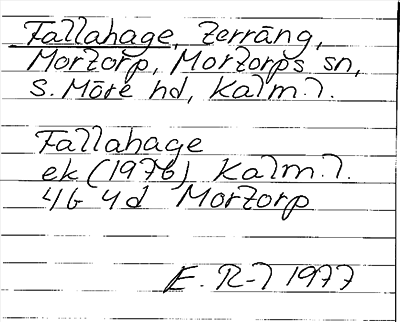 Fallahage, terräng,
Mortorp, Mortorps sn,
S. Möre hd, Kalm.l.
Fallahage
ek (1976) Kalm.l.
4G 4d Mortorp
E. R-l 1977